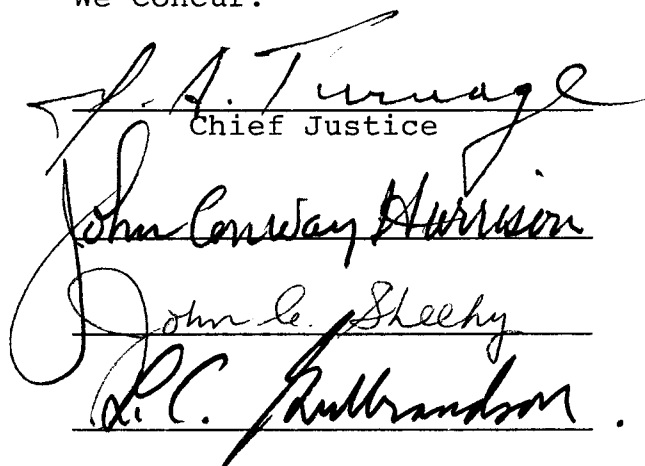 We Concur:
J. A. Turnage
Chief Justice
John Conway Harrison
John C. Sheehy
L. C. Gulbrandson.